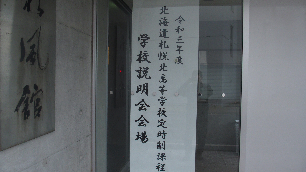 令和三年度
北海道札幌北高等学校定時制課程
学校説明会会場
風館